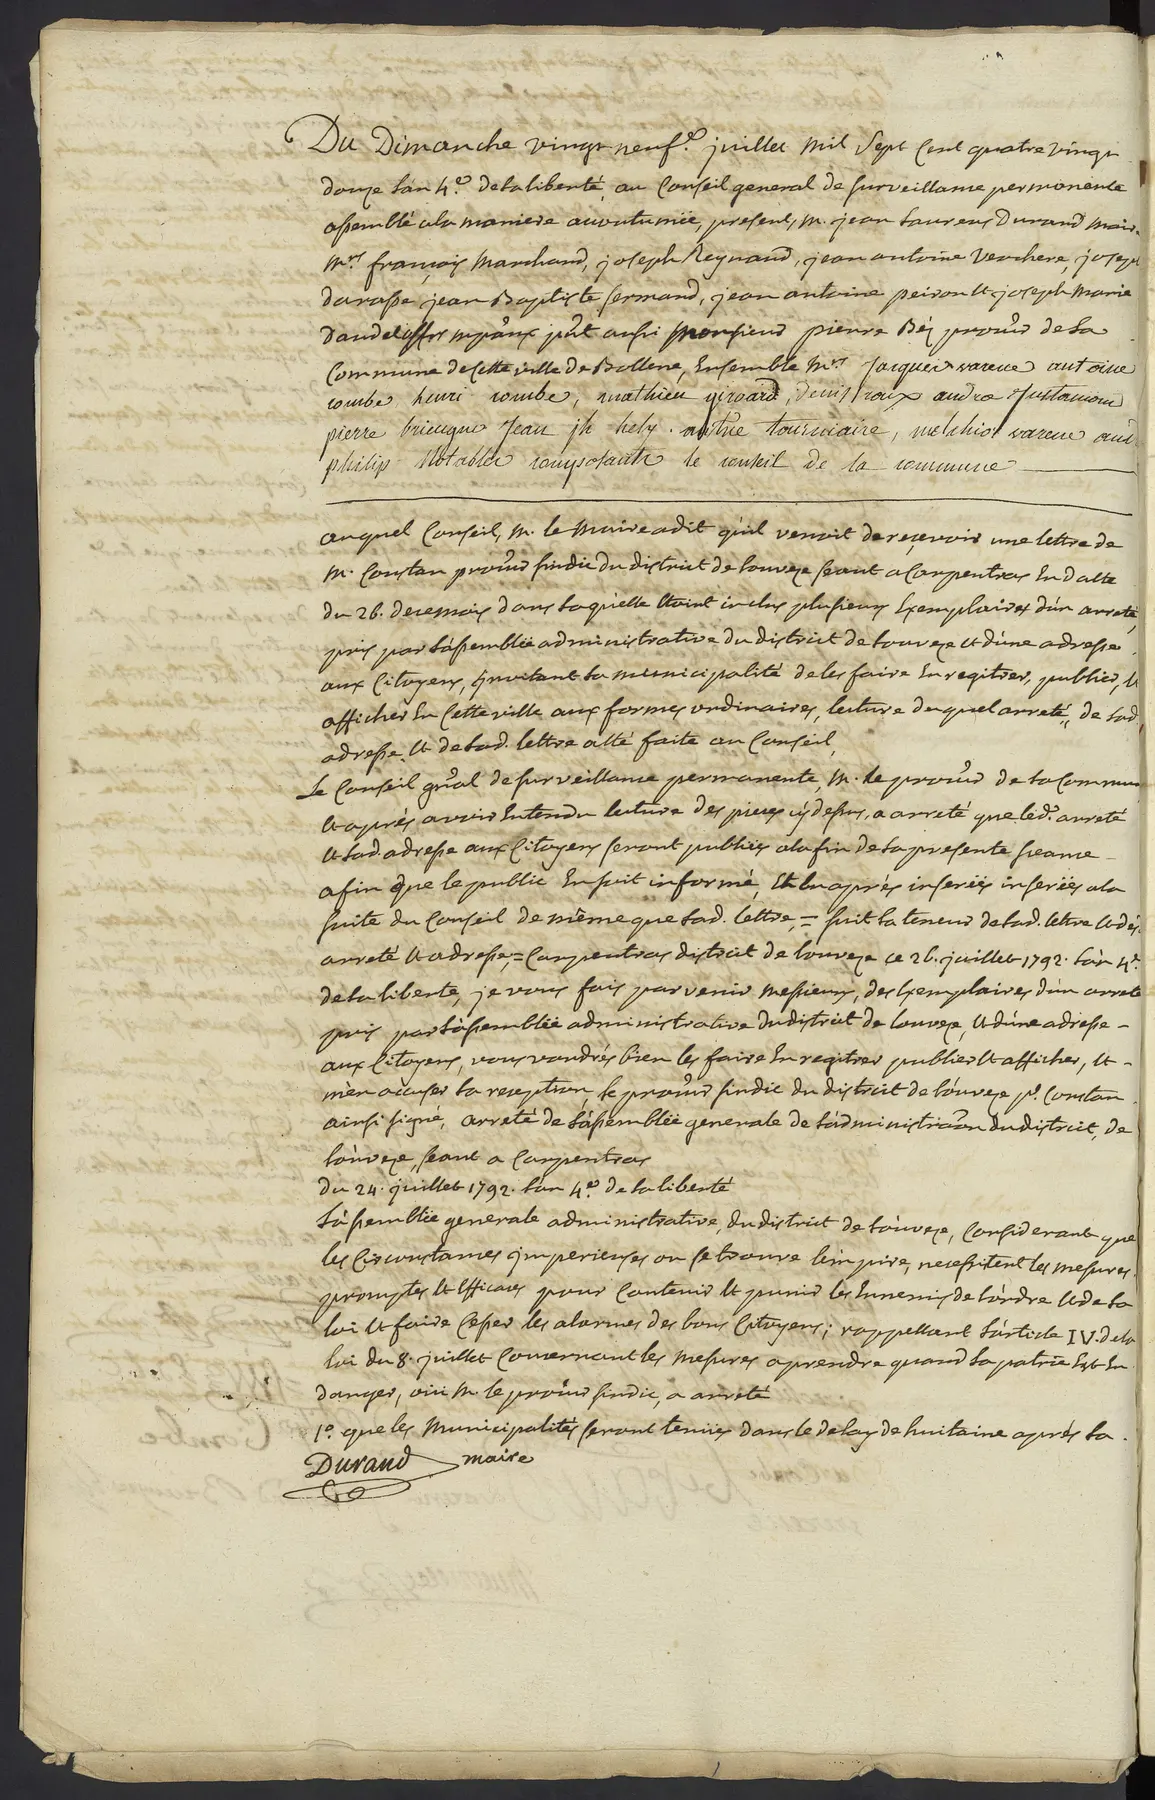 Du Dimanche vingt neuf.e juillet mil Sept Cent quatre vingt
douze l'an 4.e de la liberté, au Conseil general de surveillance permanente
assemblé a la maniere accoutumée, present, m. jean Laurens Durand maire
m.rs françois Marchand, joseph Reynaud, jean antoine Verchere, joseph
darasse, jean Baptiste fermand, jean antoine peiron et joseph Marie
pñt aussi Monsieur pierre procur de la
Commune de Cette ville de Bollene, Ensemble M.rs Jacques varene antoine
combe henri combe, mathieu girard, denis roux andre Justamond
pierre brieugne Jean jh hely . tourniaire, melchior varene
philip Notables composants le conseil de la commune
auquel Conseil, m. le Maire a dit qu'il venoit de reçevoir une lettre de
m. Constan procur sindic du district de l'ouveze seant a Carpentras En datte
du 26. de ce mois dans laquelle Etoint inclus plusieurs Exemplaires d'un arreté,
pris par l'assemblée administrative du district de l'ouveze et d'une adresse
aux Citoyens, invitant la municipalité de les faire Enregitrer, publier, et
afficher En Cette ville aux formes ordinaires, lecture duquel arreté, de lad.
adresse et de lad. lettre a été faite au Conseil,
Le Conseil gñral de surveillance permanente, M. le procur de la Commune
et après avoir Entendu lecture des pieces cy dessus, a arreté que led. arreté
et lad. adresse aux Citoyens seront publiés a la fin de la presente seance
afin que le public En soit informé, Et En après inserées inserées a la
suite du Conseil de même que lad. lettre, = suit la teneur de lad. lettre et des
arreté et adresse, = Carpentras district de l'ouveze ce 26. juillet 1792. l'an 4.e
de la liberté, je vous fais parvenir messieurs, des Exemplaires d'un arreté
pris par l'assemblée administrative du district de l'ouveze, et d'une adresse -
aux Citoyens, vous voudrés bien les faire Enregitrer publier et afficher, et -
m'en accuser la reception, le procur sindic du district de l'ouveze p.e Constan
ainsi signé, arreté de l'assemblée generale de l'administraon du district, de
l'ouveze, seant a Carpentras
du 24. juillet 1792. l'an 4.e de la liberté
L'assemblée generale administrative, du district de l'ouveze, Considerant que
les Circonstances imperieuses ou se trouve l'empire, necessitent les mesures
promptes et Efficaces pour Contenir et punir les Ennemis de l'ordre et de la
loi et faire Cesser les alarmes des bons Citoyens; rappellant l'article IV. de la
loi du 8. juillet Concernant les mesures a prendre quand la patrie Est En
danger, oui M. le procur sindic, a arreté
1.o que les Municipalités seront tenües dans le delay de huitaine après la
Durand maire